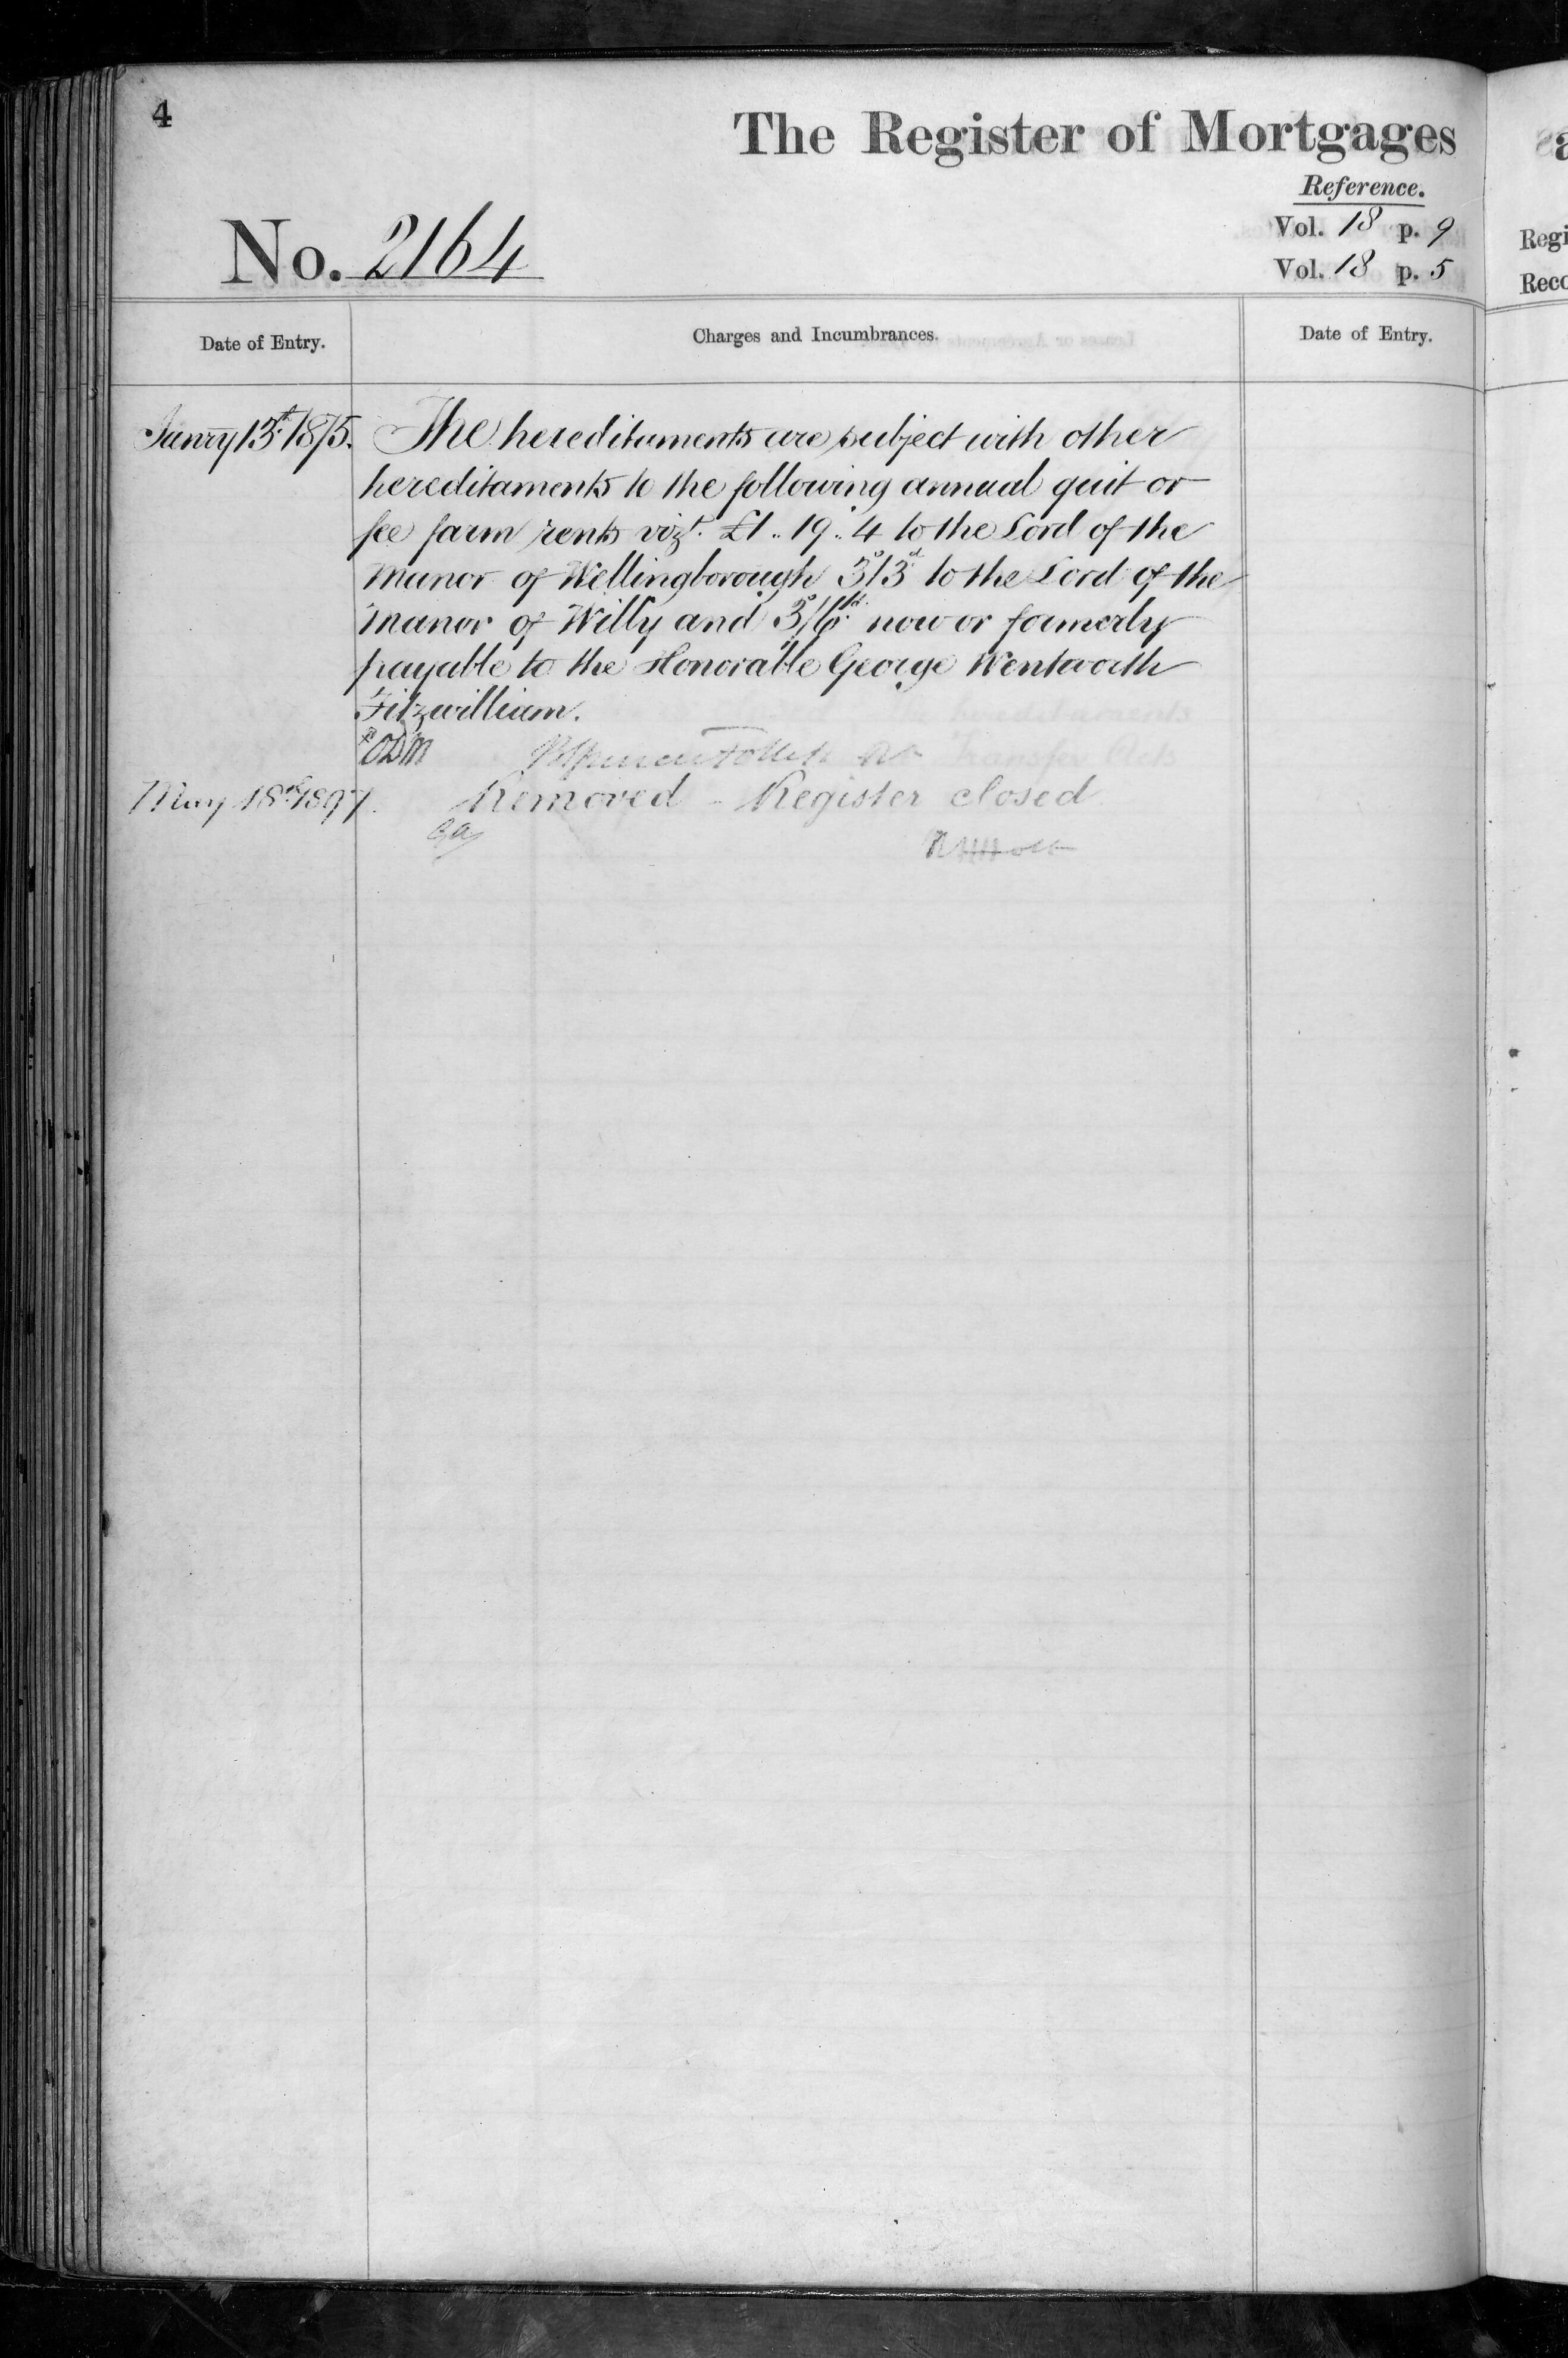 4
The Register of Mortgages
Reference.
Vol. 18 p. 9
No. 2164
Vol. 18 p. 5
Date of Entry.
Charges and Incumbrances.
Date of Entry.
Janry 13th 1875. The hereditaments are subject with other
hereditaments to the following annual quit or
fee farm rents vizt. £1.. 19.. 4 to the Lord of the
Manor of Wellingborough 3s/3d to the Lord of the
Manor of Willy and 3s/6d. now or formerly
payable to the Honorable George Wentworth
Fitzwilliam.
May 18th 1897. Removed - Register closed
RHHolt
Regi
Reco